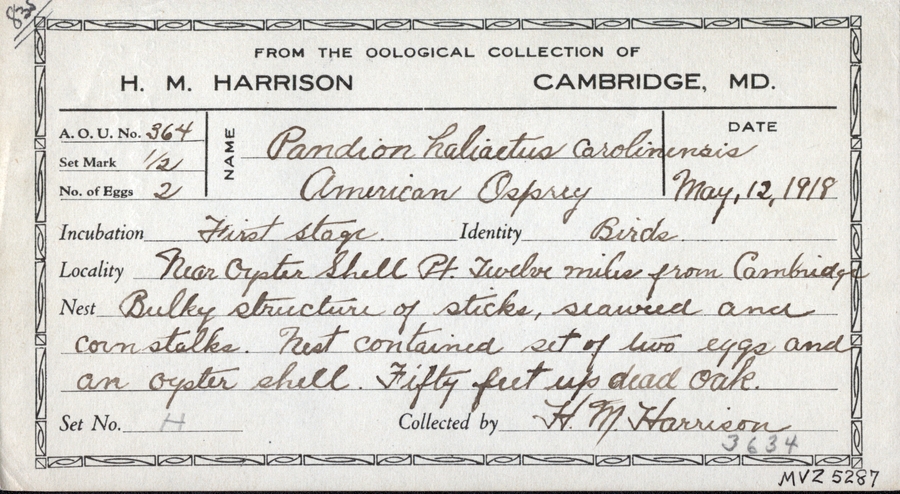 835
FROM THE OOLOGICAL COLLECTION OF
H. M. HARRISON CAMBRIDGE, MD.
A. O. U. No. 364
Set Mark 1/2
No. of Eggs 2
NAME Pandion haliaetus carolinensis
American Osprey
DATE
May, 12, 1918
Incubation First stage. Identity Birds.
Locality Near Oyster Shell Pt. Twelve miles from Cambridge
Nest Bulky structure of sticks, seaweed and
corn stalks. Nest contained set of two eggs and
an oyster shell. Fifty feet up dead oak.
Set No. H Collected by H. M. Harrison
3634
MVZ 5287